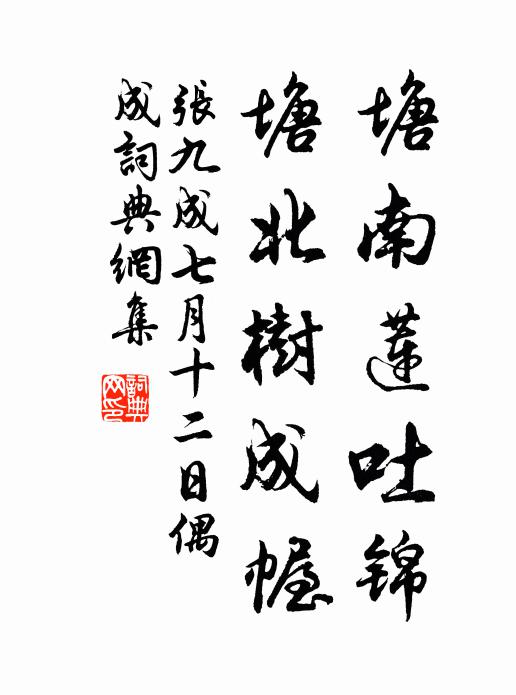 塘南蓮吐錦
塘北樹成幄
張九成七月十二日偶
成詞典網集
詞典网印